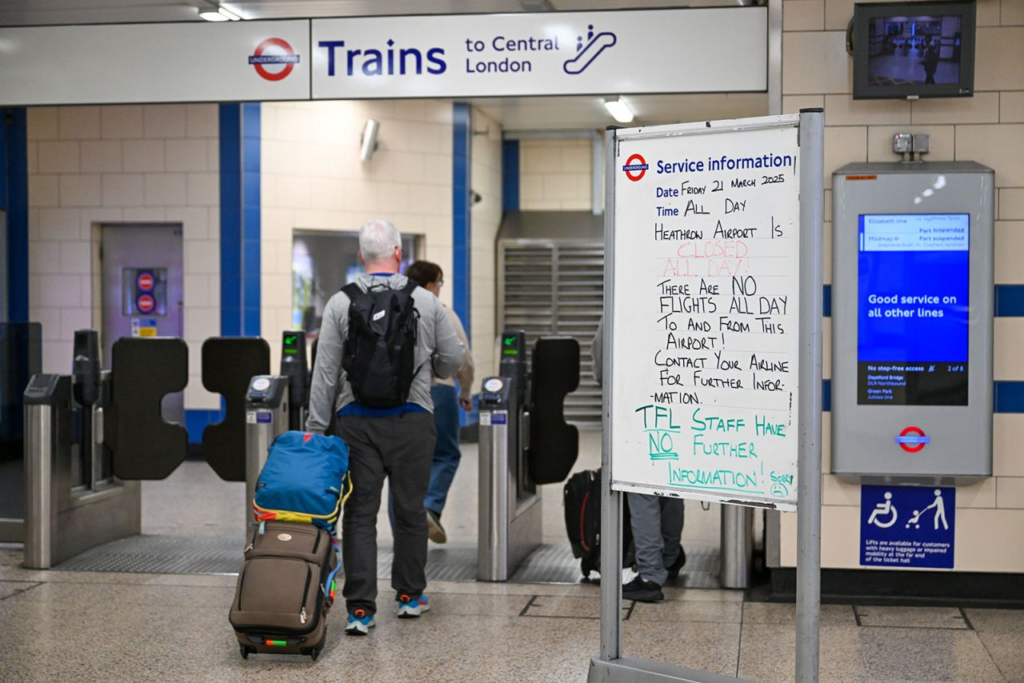 UNDERGROUND
Trains
to Central
London
UNDERGROUND
Service information
Date FRIDAY 21 MARCH 2025
Time ALL DAY
HEATHROW AIRPORT IS
CLOSED
ALL DAY!
THERE ARE NO
FLIGHTS ALL DAY
TO AND FROM THIS
AIRPORT!
CONTACT YOUR AIRLINE
FOR FURTHER INFOR-
-MATION.
TFL STAFF HAVE
NO FURTHER
INFORMATION! SORRY
Elizabeth line
Part suspended
Part suspended
Good service on
all other lines
No step-free access
2 of 8
Deptford Bridge
DLR Northbound
Green Park
Jubilee line
Lifts are available for customers
with heavy luggage or impaired
mobility at the far end
of the ticket hall